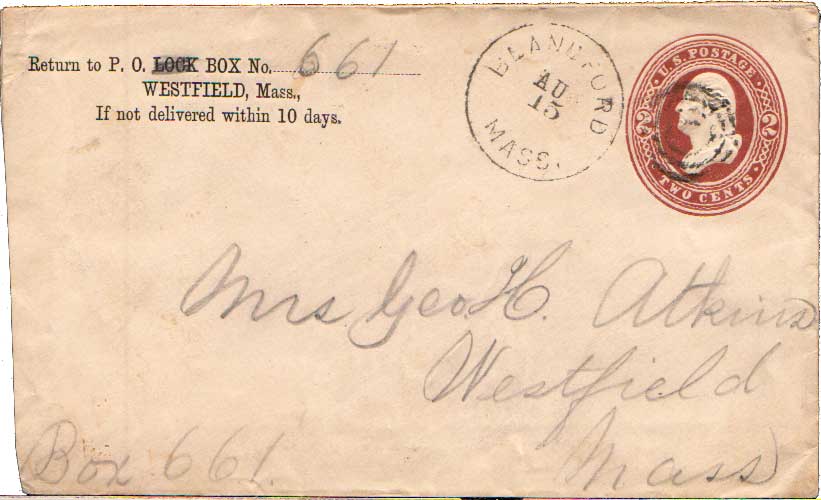 Return to P. O. LOCK BOX No. 661
WESTFIELD, Mass.,
If not delivered within 10 days.
BLANDFORD
AU
15
MASS.
U.S. POSTAGE
2 2
TWO CENTS
Mrs Geo. H. Atkins
Westfield
Mass
Box 661.